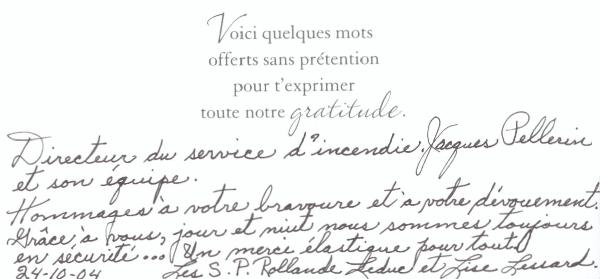 Voici quelques mots
offerts sans prétention
pour t'exprimer
toute notre gratitude.
Directeur du service d'incendie, Jacques Pellerin
et son équipe.
Hommages à votre bravoure et à votre dévouement.
Grâce, à vous, jour et niut nous sommes toujours
en securité... Un merci élastique pour tout
24-10-04 Les S. P. Rollande Leduc et Luc Lessard.